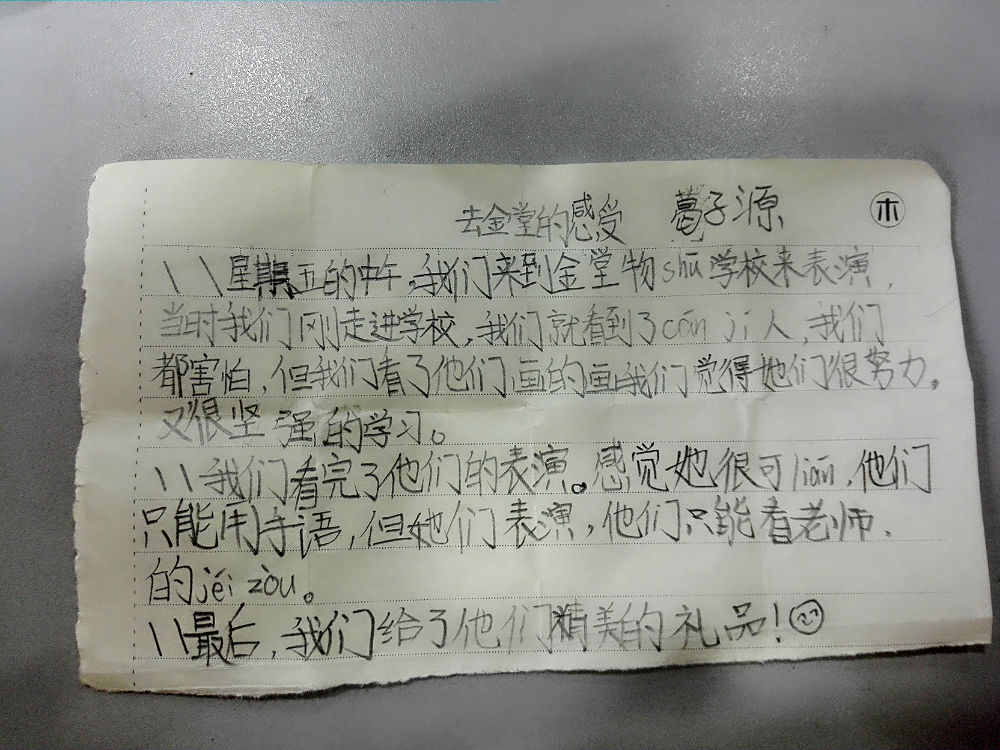 去金堂的感受 葛子源 木
\ \ 星期五的中午,我们来到金堂物shū学校来表演,
当时我们刚走进学校,我们就看到了cán jí人,我们
都害怕,但我们看了他们画的画我们觉得她们很努力。
又很坚强的学习。
\ \ 我们看完了他们的表演。感觉她很可lián,他们
只能用手语,但她们表演,他们只能看老师.
的jiéi zòu。
\ \ 最后,我们给了他们精美的礼品!